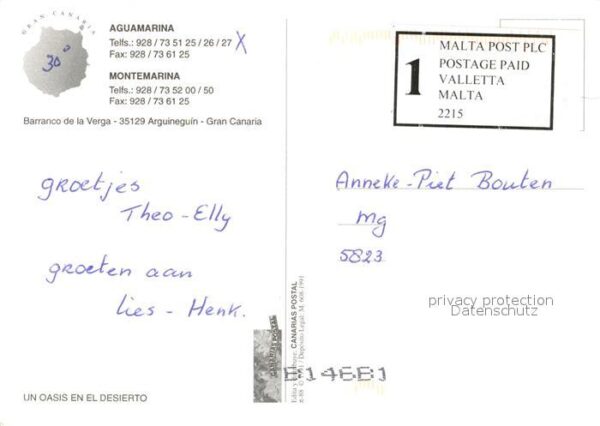 GRAN CANARIA
30°
AGUAMARINA
Telfs.: 928 / 73 51 25 / 26 / 27 X
Fax: 928 / 73 61 25
MONTEMARINA
Telfs.: 928 / 73 52 00 / 50
Fax: 928 / 73 61 25
Barranco de la Verga - 35129 Arguineguín - Gran Canaria
1
MALTA POST PLC
POSTAGE PAID
VALLETTA
MALTA
2215
groetjes
Theo - Elly
groeten aan
Lies - Henk.
Anneke - Piet Bouten
Mg
5823
privacy protection
Datenschutz
CANARIAS POSTAL
CANARIAS POSTAL
Depósito Legal: M.
B146B1
UN OASIS EN EL DESIERTO